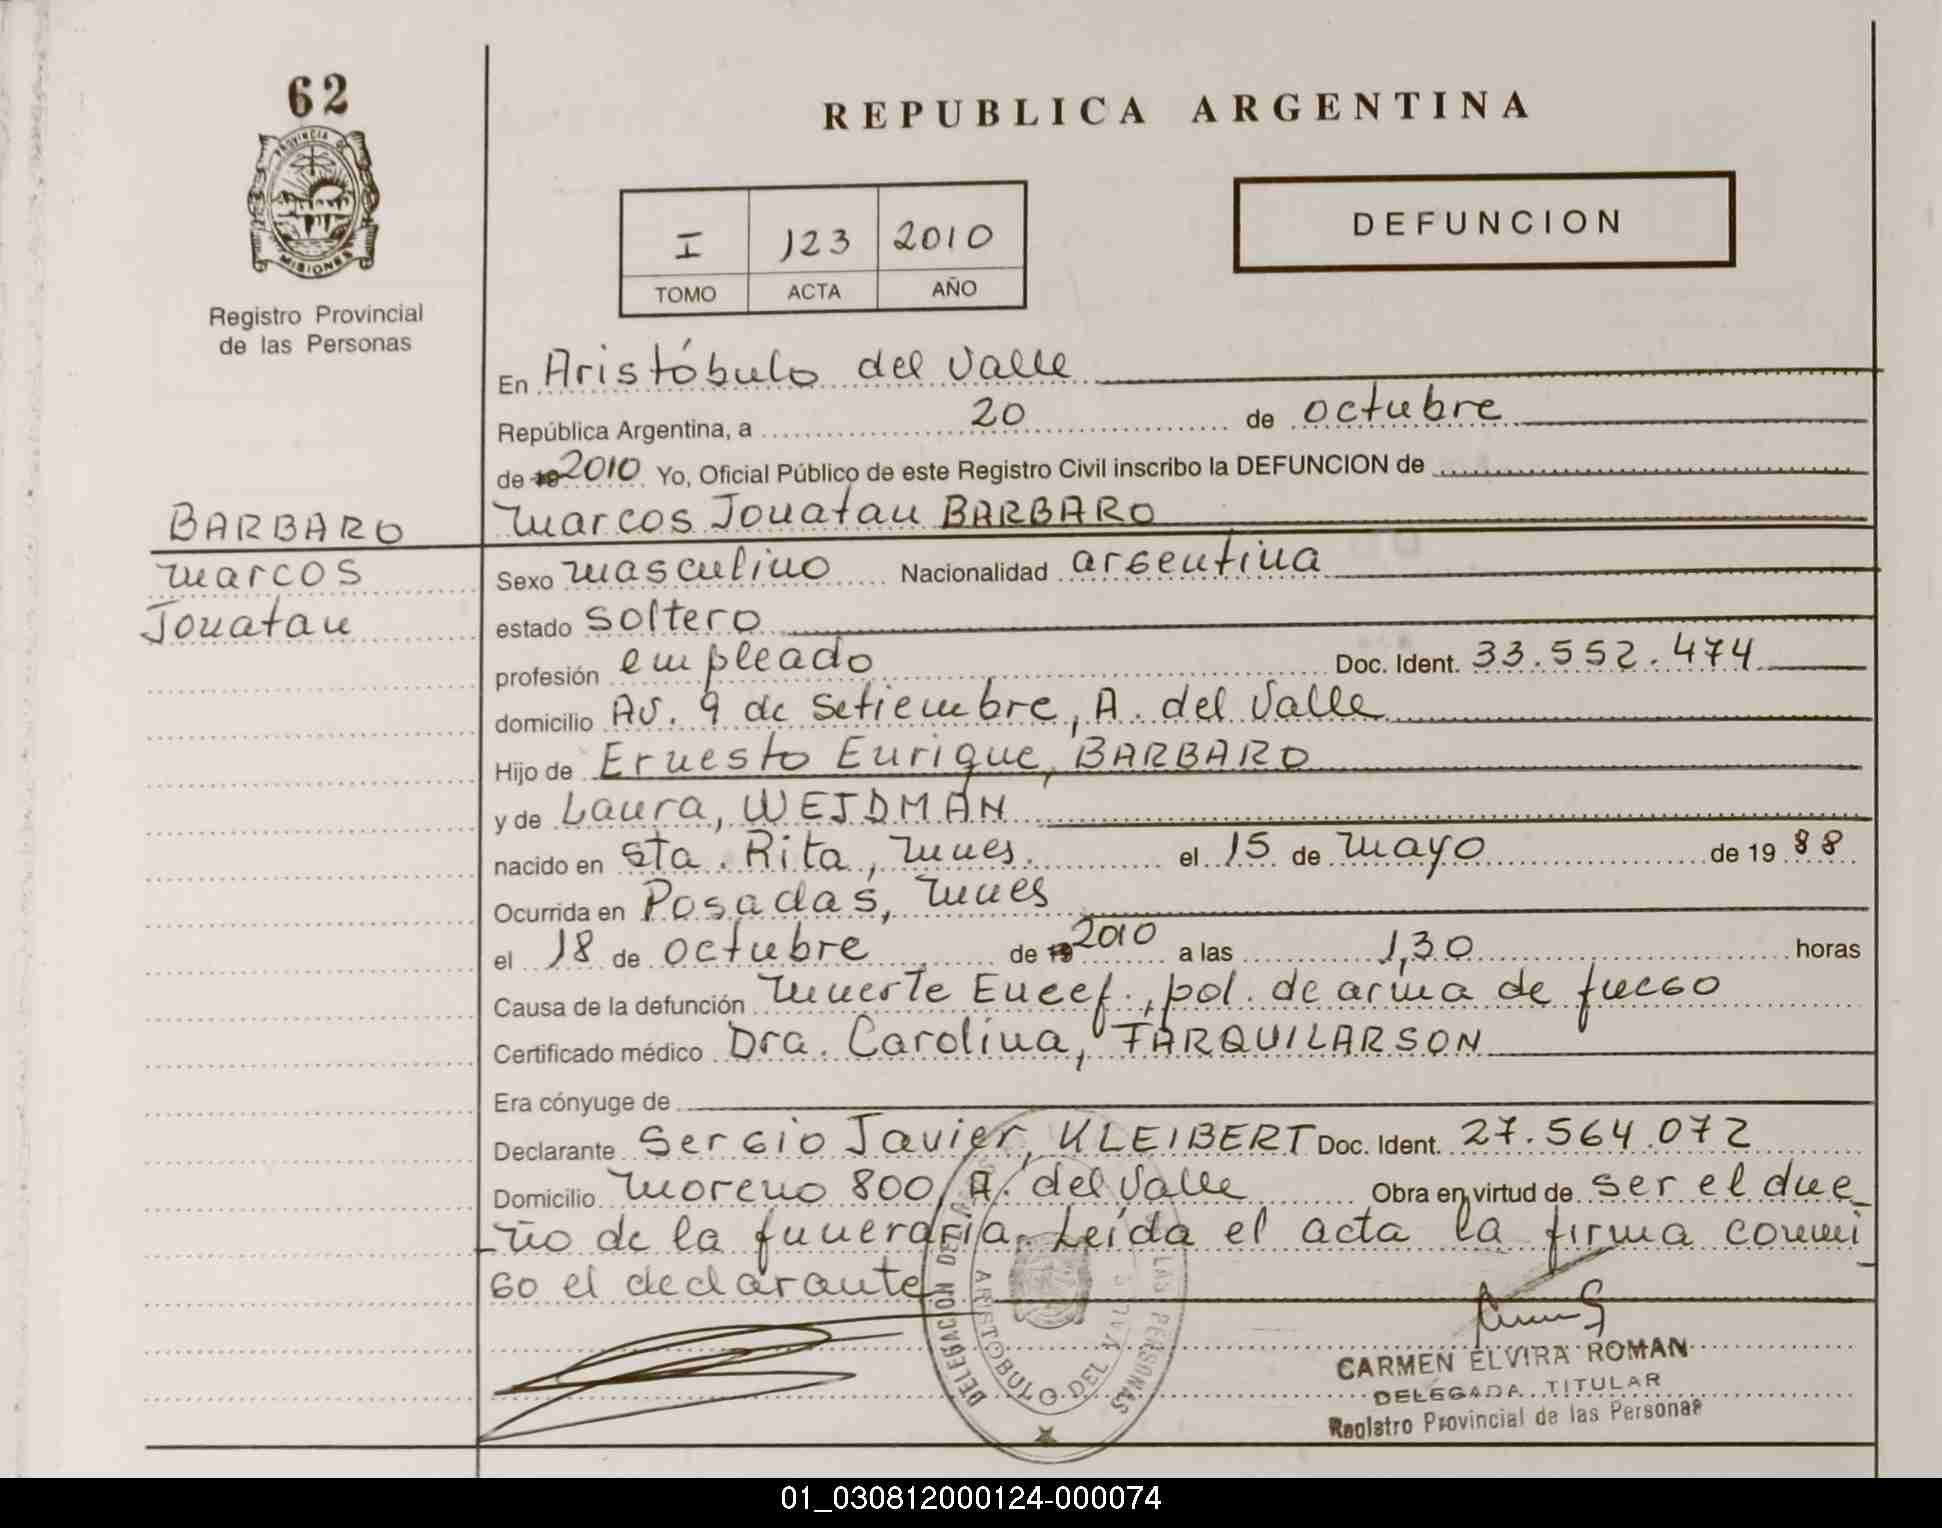 62
PROVINCIA DE
MISIONES
Registro Provincial
de las Personas
REPUBLICA ARGENTINA
I 123 2010
TOMO ACTA AÑO
DEFUNCION
En Aristóbulo del Valle
República Argentina, a 20 de octubre
de 19 2010 Yo, Oficial Público de este Registro Civil inscribo la DEFUNCION de
BARBARO
Marcos Jonatan
Marcos Jonatan BARBARO
Sexo masculino Nacionalidad argentina
estado soltero
profesión empleado Doc. Ident. 33.552.474
domicilio Av. 9 de Setiembre, A. del Valle
Hijo de Ernesto Enrique, BARBARO
y de Laura, WEIDMAN
nacido en Sta. Rita, Mnes. el 15 de Mayo de 1988
Ocurrida en Posadas, Mnes
el 18 de octubre de 19 2010 a las 1,30 horas
Causa de la defunción Muerte Encef., pol. de arma de fuego
Certificado médico Dra. Carolina, TARQUILARSON
Era cónyuge de
Declarante Sergio Javier, KLEIBERT Doc. Ident. 27.564.072
Domicilio Moreno 800, A. del Valle Obra en virtud de ser el due_
_ño de la funeraria. Leída el acta la firma conmi_
go el declarante
DELEGACIÓN DE LAS PERSONAS
ARISTOBULO DEL VALLE
CARMEN ELVIRA ROMAN
DELEGADA TITULAR
Registro Provincial de las Personas
01_030812000124-000074